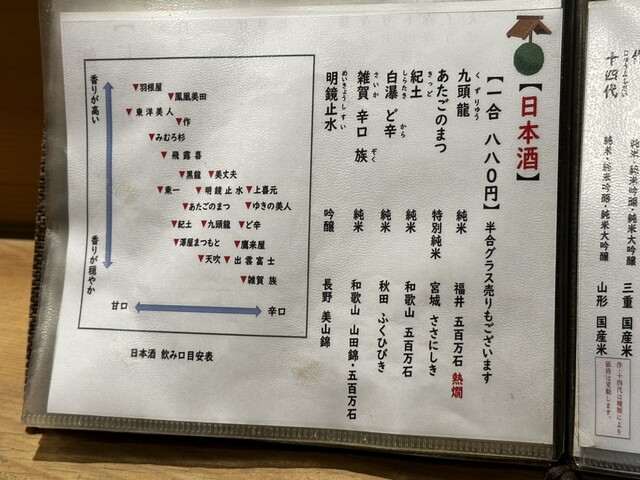 【日本酒】
【一合 八八0円】 半合グラス売りもございます
くずりゅう
九頭龍 純米 福井 五百万石 熱燗
あたごのまつ 特別純米 宮城 ささにしき
きっど
紀土 純米 和歌山 五百万石
しらたき から
白瀑 ど辛 純米 秋田 ふくひびき
さいか ぞく
雑賀 辛口 族 純米 和歌山 山田錦・五百万石
めいきょうしすい
明鏡止水 吟醸 長野 美山錦
香りが高い
香りが穏やか
▼羽根屋
▼鳳凰美田
▼東洋美人
▼作
▼みむろ杉
▼飛露喜
▼黒龍 ▼美丈夫
▼東一 ▼明鏡止水 ▼上喜元
▼あたごのまつ ▼ゆきの美人
▼紀土 ▼九頭龍 ▼ど辛
▼澤屋まつもと ▼鷹来屋
▼天吹 ▼出雲富士
▼雑賀 族
甘口 辛口
日本酒 飲み口目安表
純米・純米吟醸・純米大吟醸 三重 国産米
十四代 純米・純米吟醸・純米大吟醸 山形 国産米
作・十四代は種類により
価格は変動します。